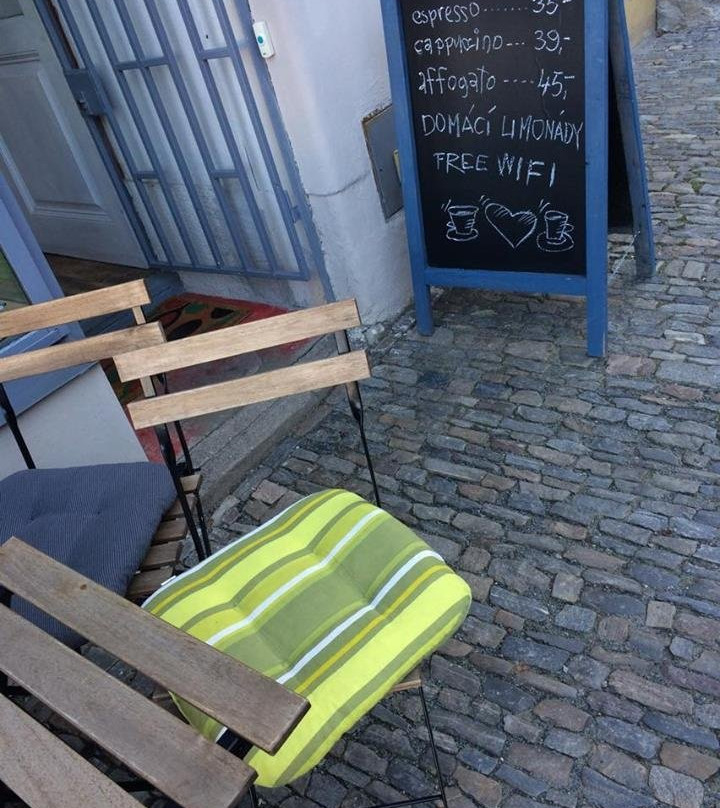 espresso ....... 35,-
cappuccino --- 39,-
affogato ---- 45,-
DOMÁCÍ LIMONÁDY
FREE WIFI